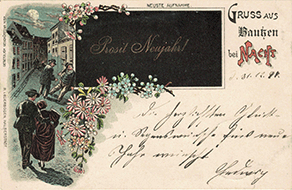 NEUSTE AUFNAHME.
GRUSS AUS
Bautzen
bei NACHT
d. 31.12.98.
Prosit Neujahr!
Die herzlichsten Glück-
u. Segenswünsche zum neuen
Jahr wünscht
Hedwig